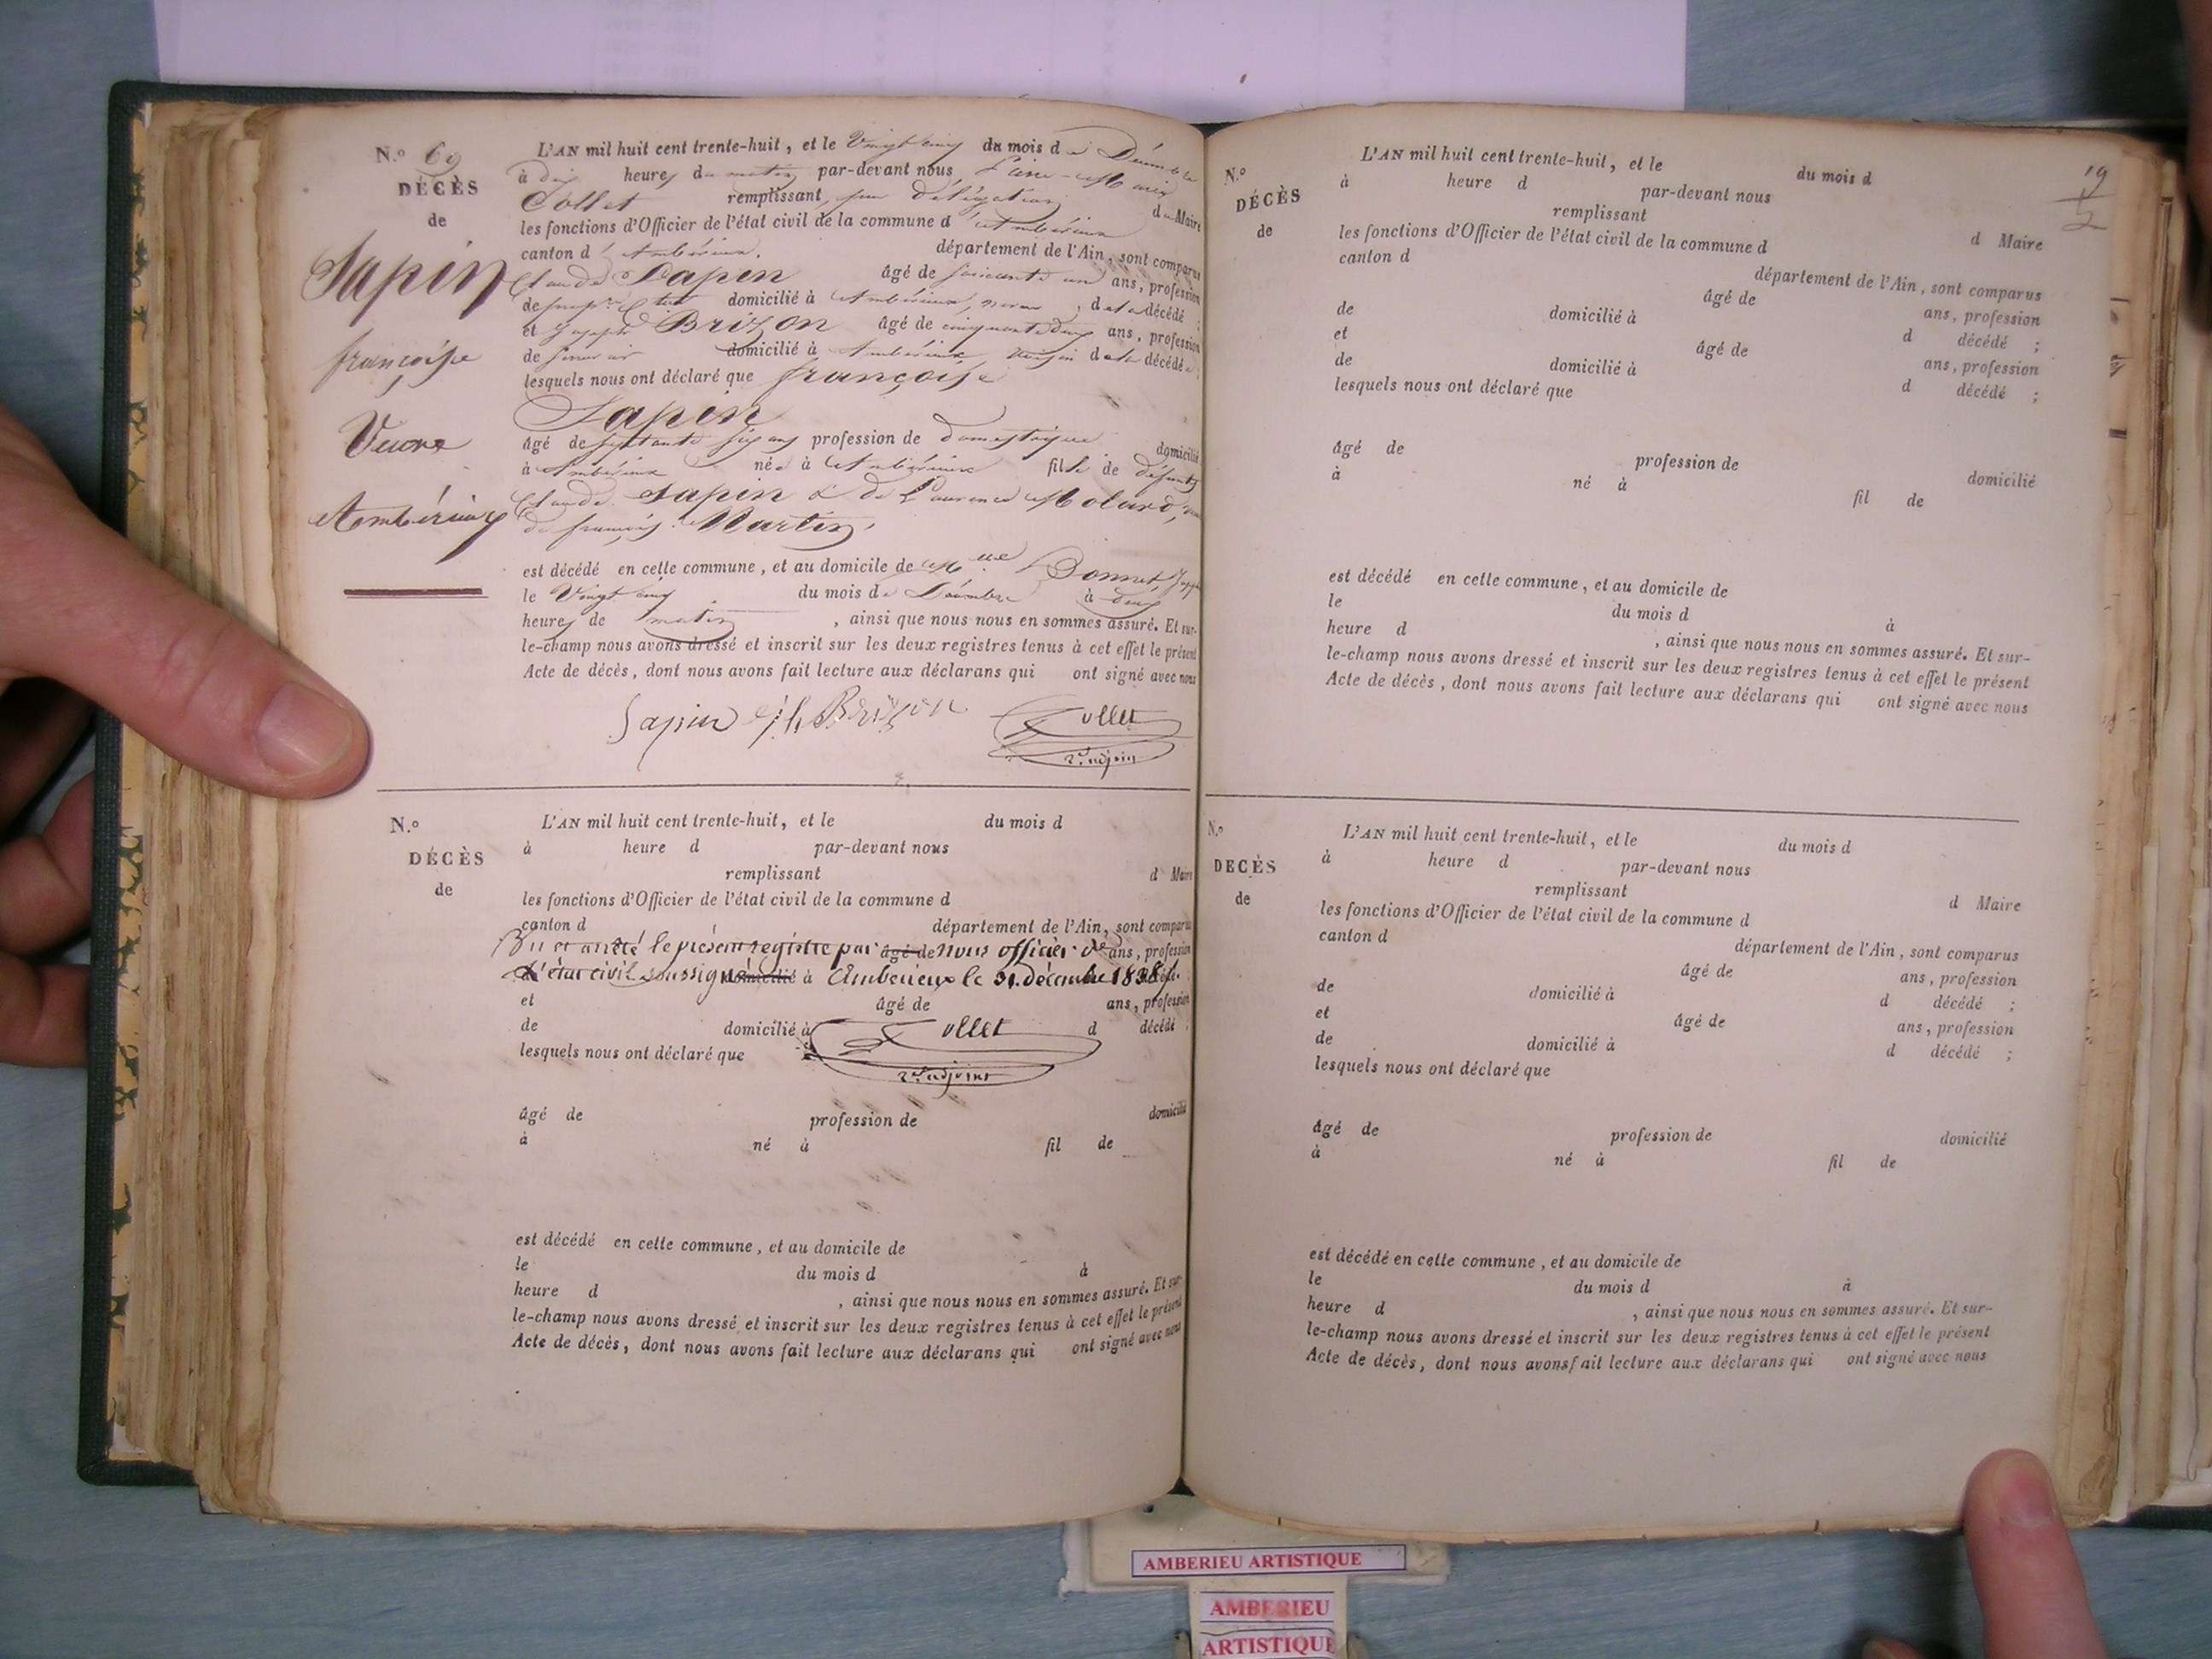 N.° 69
DÉCÈS
de
Sapin
françoise
Veuve
Ambérieux
L'AN mil huit cent trente-huit, et le Vingt cinq du mois de Décembre
à dix heures du matin par-devant nous Pierre-Marie
Collet remplissant, par délégation du Maire
les fonctions d'Officier de l'état civil de la commune d'Ambérieux
canton d'Ambérieux, département de l'Ain, sont comparus
Claude Sapin âgé de soixante un ans, profession
de domicilié à Ambérieux, neveu, de la décédée ;
et Joseph Brizon âgé de cinquante deux ans, profession
de domicilié à Ambérieux, voisin de la décédée ;
lesquels nous ont déclaré que françoise
Sapin
âgé de septante six ans profession de domestique domicilié
à Ambérieux née à Ambérieux fille de défunts
Claude Sapin & de Laurence Molard,
de françois Martin,
est décédé en cette commune, et au domicile de Bonnet,
le Vingt cinq du mois de Décembre à deux
heures de matin, ainsi que nous nous en sommes assuré. Et sur-
le-champ nous avons dressé et inscrit sur les deux registres tenus à cet effet le présent
Acte de décès, dont nous avons fait lecture aux déclarans qui ont signé avec nous
Sapin jh Brizon Collet
2e adjoint
N.°
DÉCÈS
de
L'AN mil huit cent trente-huit, et le du mois d
à heure d par-devant nous
remplissant d Maire
les fonctions d'Officier de l'état civil de la commune d
canton d département de l'Ain, sont comparus
Vu et arrêté le présent registre par âgé de nous officier de ans, profession
d l'état civil soussigné domicilié à Amberieux le 31 décembre 1838.
et âgé de ans, profession
de domicilié à Collet d décédé ;
lesquels nous ont déclaré que
2e adjoint
âgé de profession de domicilié
à né à fil de
est décédé en cette commune, et au domicile de
le du mois d à
heure d , ainsi que nous nous en sommes assuré. Et sur-
le-champ nous avons dressé et inscrit sur les deux registres tenus à cet effet le présent
Acte de décès, dont nous avons fait lecture aux déclarans qui ont signé avec nous
19
N.°
DÉCÈS
de
L'AN mil huit cent trente-huit, et le du mois d
à heure d par-devant nous
remplissant d Maire
les fonctions d'Officier de l'état civil de la commune d
canton d département de l'Ain, sont comparus
âgé de ans, profession
de domicilié à d décédé ;
et âgé de ans, profession
de domicilié à d décédé ;
lesquels nous ont déclaré que
âgé de profession de domicilié
à né à fil de
est décédé en cette commune, et au domicile de
le du mois d à
heure d , ainsi que nous nous en sommes assuré. Et sur-
le-champ nous avons dressé et inscrit sur les deux registres tenus à cet effet le présent
Acte de décès, dont nous avons fait lecture aux déclarans qui ont signé avec nous
N.°
DÉCÈS
de
L'AN mil huit cent trente-huit, et le du mois d
à heure d par-devant nous
remplissant d Maire
les fonctions d'Officier de l'état civil de la commune d
canton d département de l'Ain, sont comparus
âgé de ans, profession
de domicilié à d décédé ;
et âgé de ans, profession
de domicilié à d décédé ;
lesquels nous ont déclaré que
âgé de profession de domicilié
à né à fil de
est décédé en cette commune, et au domicile de
le du mois d à
heure d , ainsi que nous nous en sommes assuré. Et sur-
le-champ nous avons dressé et inscrit sur les deux registres tenus à cet effet le présent
Acte de décès, dont nous avons fait lecture aux déclarans qui ont signé avec nous
AMBERIEU ARTISTIQUE
AMBERIEU
ARTISTIQUE